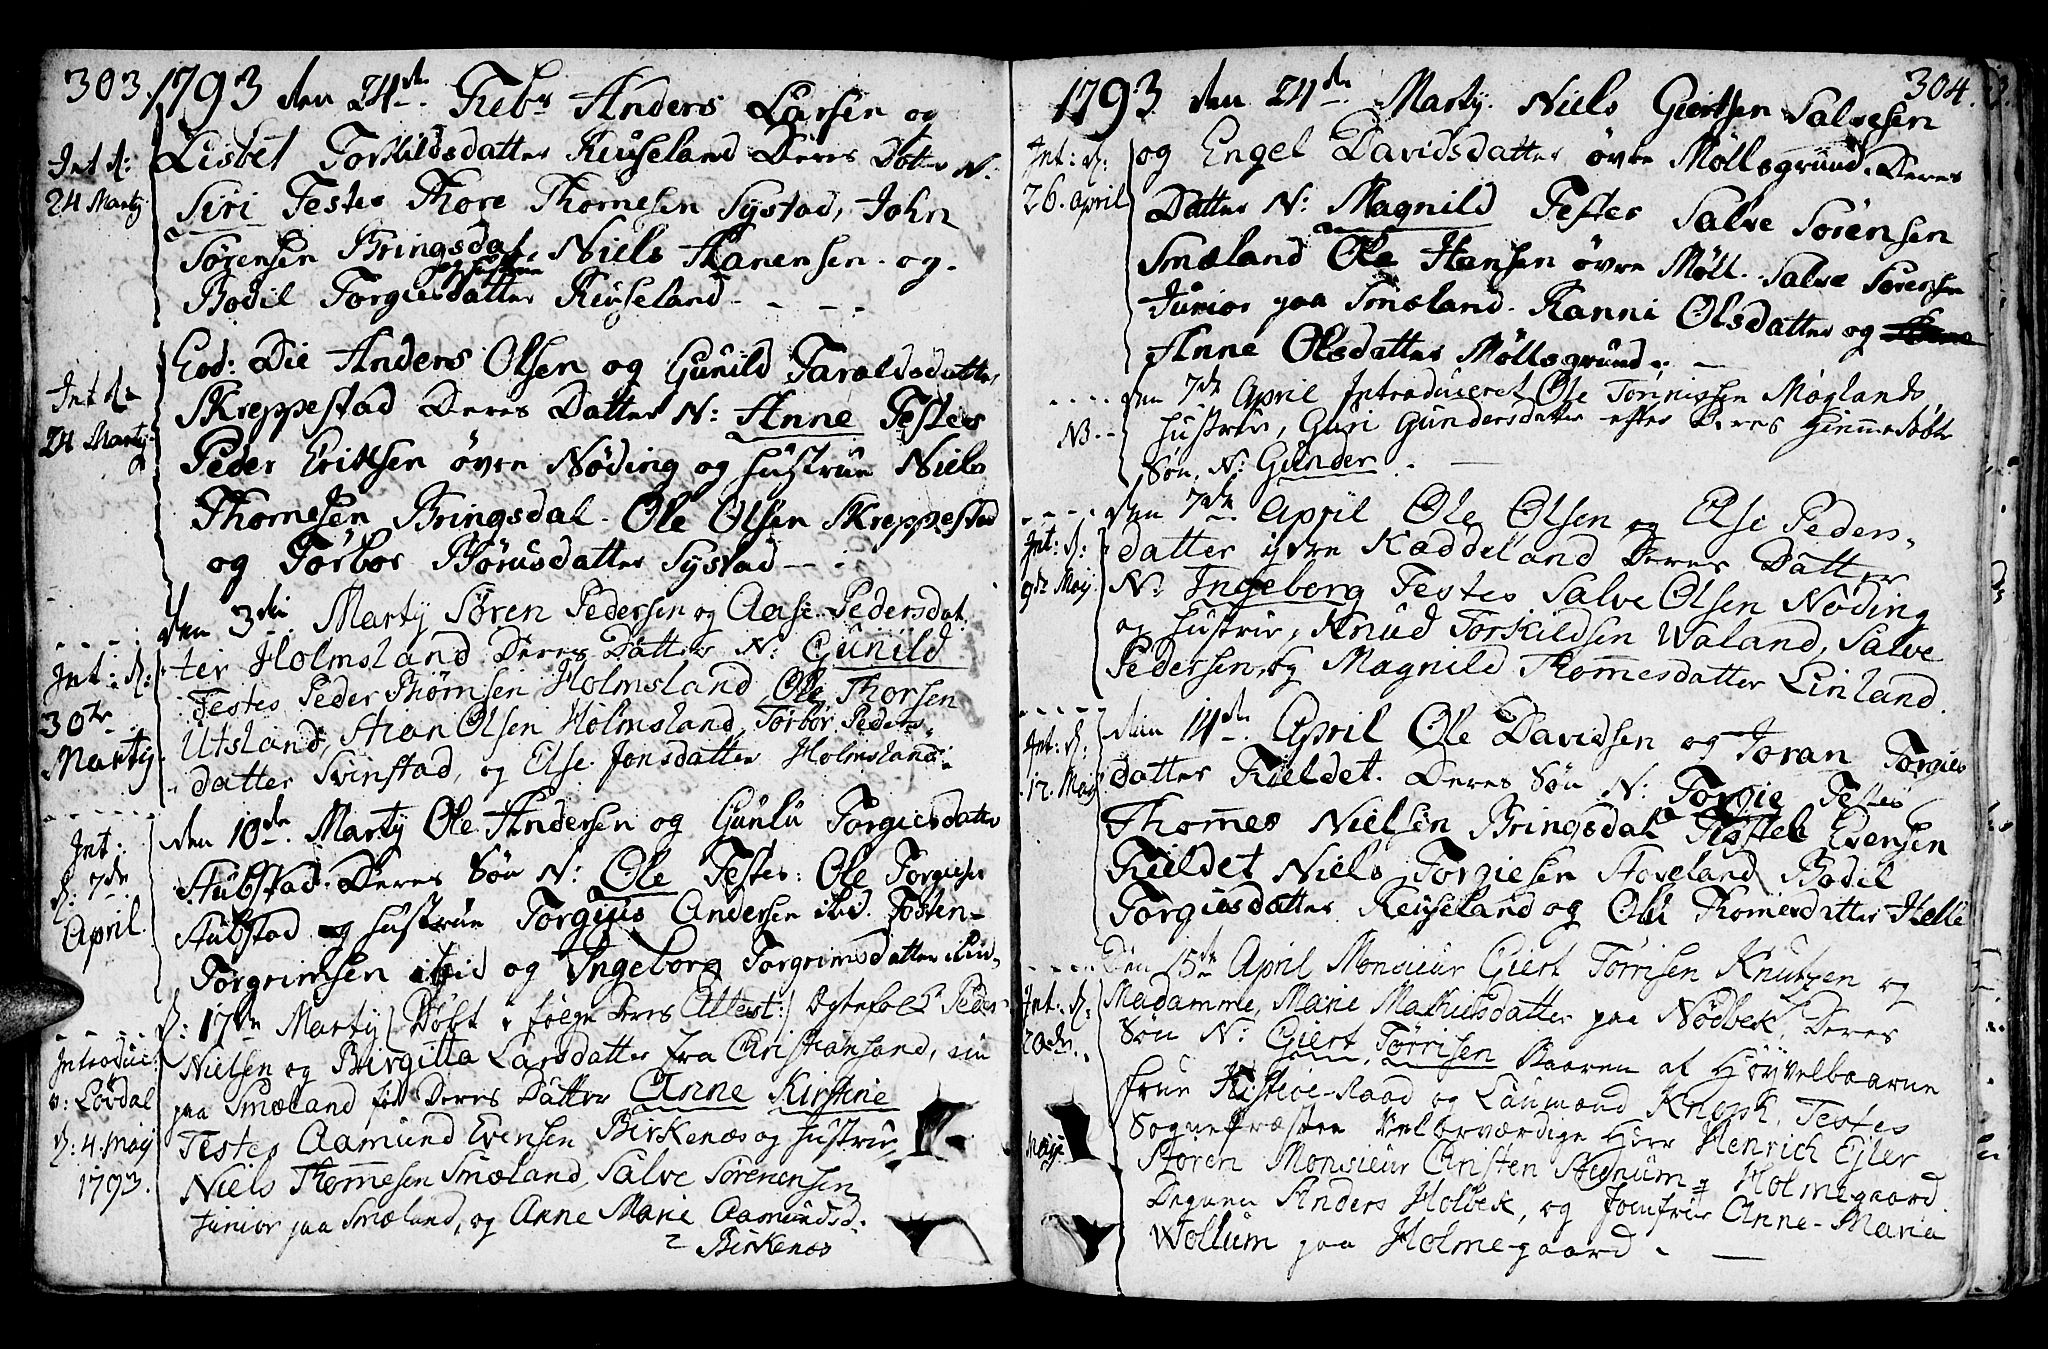 303. 1793 den 24de. Febr Anders Larsen og
Int d:
24 Marty
Lisbet Torkildsdatter Reuseland Deres Dotter N.
Siri Testes Thore Thomesen Systad, John
Sørensen Bringsdal, Niels Hanensen og
og hustrue
Bodil Torgiesdatter Reuseland
Int d:
24 Marty
Eod: Die Anders Olsen og Gunild Taraldsdatter
Skreppestad Deres Datter N: Anne Testes
Peder Eriksen øvre Nøding og hustrue Niels
Thomesen Bringsdal. Ole Olsen Skreppestad
og Torbor Børusdatter Systad
Int: d:
30te
Marty
den 3die Marty Søren Pedersen og Aase Pedersdat
ter Holmsland Deres Datter N: Gunild
Testes Peder Biørnsen Holmsland, Ole Thorsen
Utsland, Aan Olsen Holmsland, Torbor Peders
datter Svinstad, og Else Jonsdatter Holmsland
Int:
d: 7de
April
den 10de. Marty Ole Andersen og Gunlu Torgiesdatter
Stubstad. Deres Søn N: Ole Testes: Ole Torgiesen
Stubstad og hustrue Torgius Andersen ibid. Tosten
Torgrimsen ibid og Ingeborg Torgrimsdatter ibid.
Introduc:
v: Løvdal
d: 4. May
1793.
d: 17de Marty (Døbt i følge Deres Attest:) Peder
Nielsen og Birgitta Larsdatter fra Christiansand, nu
paa Smæland før Deres Datter Anne Kirstine
Testes Aamund Evensen Birkenæs og hustrue,
Niels Thomesen Smæland, Salve Sørensen
Junior paa Smæland, og Anne Marie Aamundsd.
Birkenæs
1793 den 24de. Marty. Niels Giertsen Salvesen 304.
Int: d:
26. april
og Engel Davidsdatter øvre Møllsgrund. Deres
Datter N: Magnild Testes Salve Sørensen
Smæland Ole Hansen øvre Møll. Salve Sørensen
Junior paa Smæland. Ranni Olsdatter og
Anne Olsdatter Møllsgrund.
NB.
den 7de April Introduceret Ole Tønnissen Møglands
hustrue, Guri Gundersdatter efter Deres Hiemmedøbte
Søn, N: Gunder.
Int: d:
9de May
den 7de April Ole Olsen og Else Peders
datter ydre Kaddeland Deres Datter
N: Ingeborg Testes Salve Olsen Nøding
og hustrue, Knud Torkildsen Waland, Salve
Pedersen, og Magnild Thomesdatter Linland.
Int: d:
12. May
den 14de. April Ole Davidsen og Joran Torgies
datter Fieldet. Deres Søn N: Torgie Testes
Thomes Nielsen Bringsdal Kittel Evensen
Fieldet Niels Torgiesen Stoveland Bodil
Torgiesdatter Reuseland og Oli Thomesdatter Helle
Int: d:
20de.
May
Den 15de April Monsieur Giert Tørrisen Knutzen og
Madamme, Marie Mathisdatter paa Nødbek, Deres
Søn N: Giert Tørrisen Baaren af Høyvelbaarne
frue Justice-Raad og Laumand Knoph, Testes
Sognepræsten Velærværdige Herr Henrich Ejler
Støren Monsieur Christen Stenum og Holmegaard
Degnen Anders Holbek, og Jomfrue Anne-Maria
Wollum paa Holme-gaard.